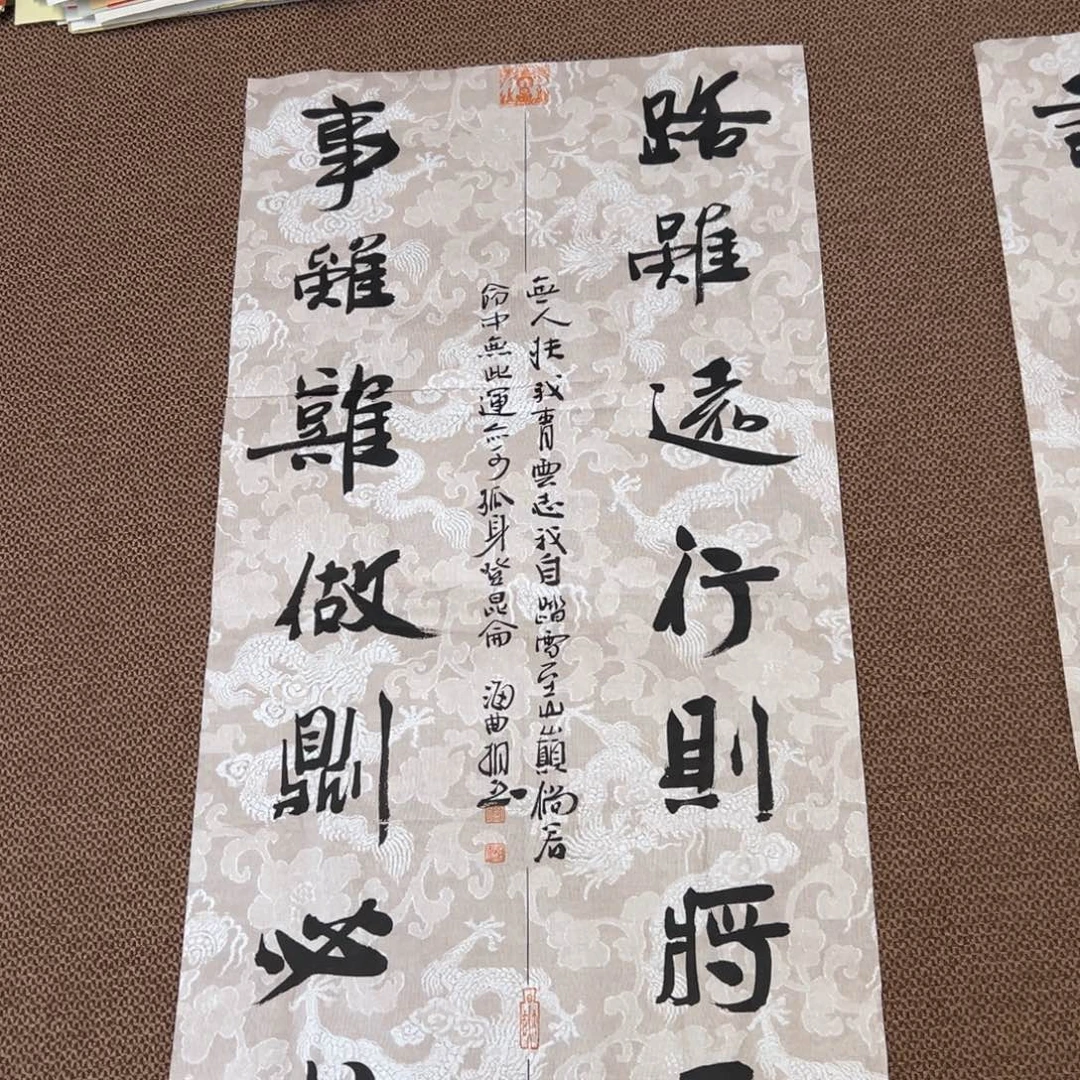 路雖遠行則將
事雖難做則必
無人扶我青雲志我自踏雪至山巔倘若
命中無此運亦可孤身登昆侖
海曲